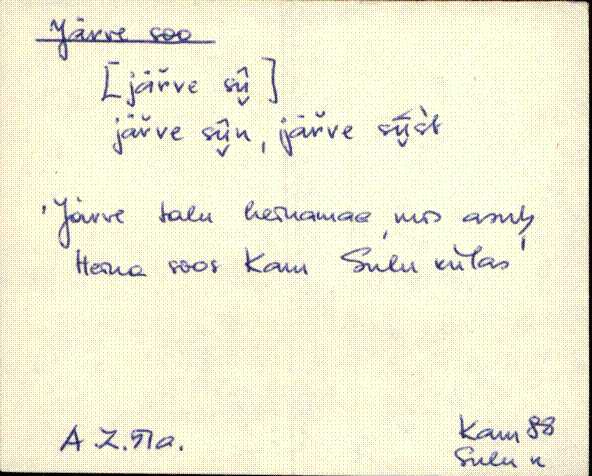 Järve soo
[jäře sụ̑]
jäřve sụ̑n, jäřve sụ̑śt
'Järve talu heinamaa, mis asub
Heina soos Kam Sulu külas'
Kam 88
A. Z. 51a.
Sulu k